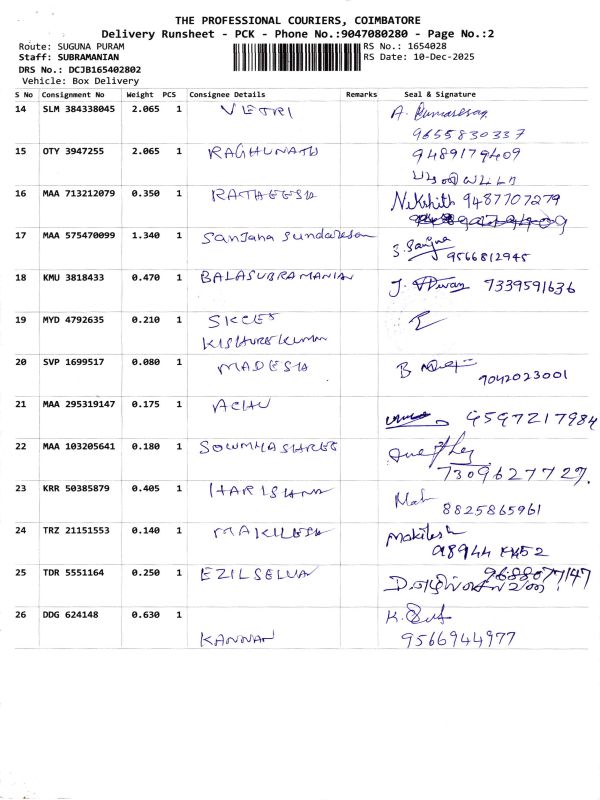 THE PROFESSIONAL COURIERS, COIMBATORE
Delivery Runsheet - PCK - Phone No.:9047080280 - Page No.:2
Route: SUGUNA PURAM RS No.: 1654028
Staff: SUBRAMANIAN RS Date: 10-Dec-2025
DRS No.: DCJB165402802
Vehicle: Box Delivery
S No Consignment No Weight PCS Consignee Details Remarks Seal & Signature
14 SLM 384338045 2.065 1 VETRI A. Kumaresan
9655830337
15 OTY 3947255 2.065 1 RAGHUNATH 9489179409
16 MAA 713212079 0.350 1 RATHEESH Nikshith 9487707279
17 MAA 575470099 1.340 1 Sanjana Sundaresan S. Sanjna
9566812945
18 KMU 3818433 0.470 1 BALASUBRAMANIAN J. 7339591636
19 MYD 4792635 0.210 1 SKCET
KISHOREKUMAR
20 SVP 1699517 0.080 1 MADESH B
9042023001
21 MAA 295319147 0.175 1 ACHU 9597217984
22 MAA 103205641 0.180 1 SOWMYASHREE
7309627727.
23 KRR 50385879 0.405 1 HARISHNA
8825865961
24 TRZ 21151553 0.140 1 MAKILESH Makilesh
25 TDR 5551164 0.250 1 EZILSELVAN 9688077147
26 DDG 624148 0.630 1 K.
KANNAN 9566944977